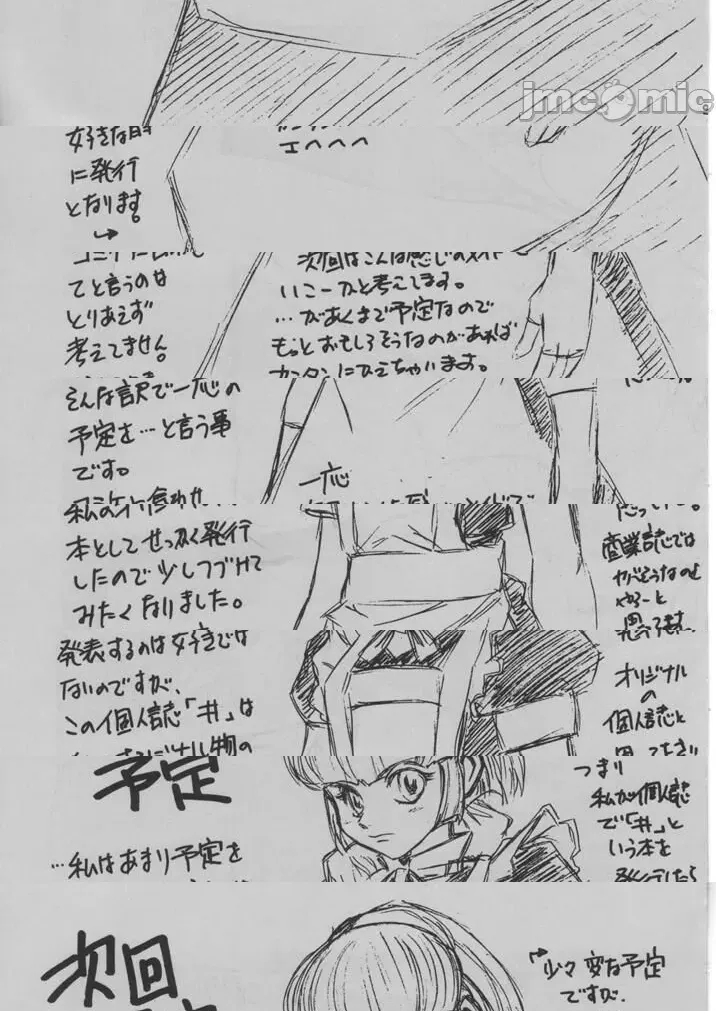 jmcomic
好きな時
に発行
となります。
エヘヘヘ
てと言うのは
とりあえず
考えてません。
次回はこんな感じのメイドで
いこーかと考えてます。
…があくまで予定なので
もっとおもしろそうなのがあれば
カンタンにひえちゃいます。
そんな訳で一応の
予定を…と言う事
です。
一応
本としてせっかく発行
したので少しつづけて
みたくなりました。
商業誌では
やばそうなのも
やろーと
思ってます…
発表するのは好きでは
ないのですが、
この個人誌「井」は
オリジナル
の
個人誌と
予定
…私はあまり予定を
つまり
私が個人誌
で「井」と
いう本を
発行したら
次回
少々変な予定
ですが、